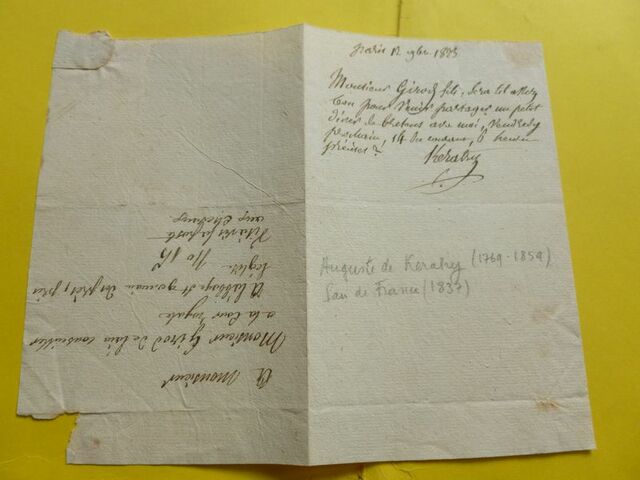 Paris 12 9bre. 1823
Monsieur Girod fils, sera t'il assez
bon pour venir partager un petit
diner de bretons avec moi, Vendredy
prochain, 14 du courant, 6 heures
précises?
Keratry
Auguste de Keratry (1769-1859)
Pair de France (1837)
A Monsieur
Monsieur Girod de l'ain conseiller
a la Cour royale
A l'abbaye St germain des près, près
l'église. No 13